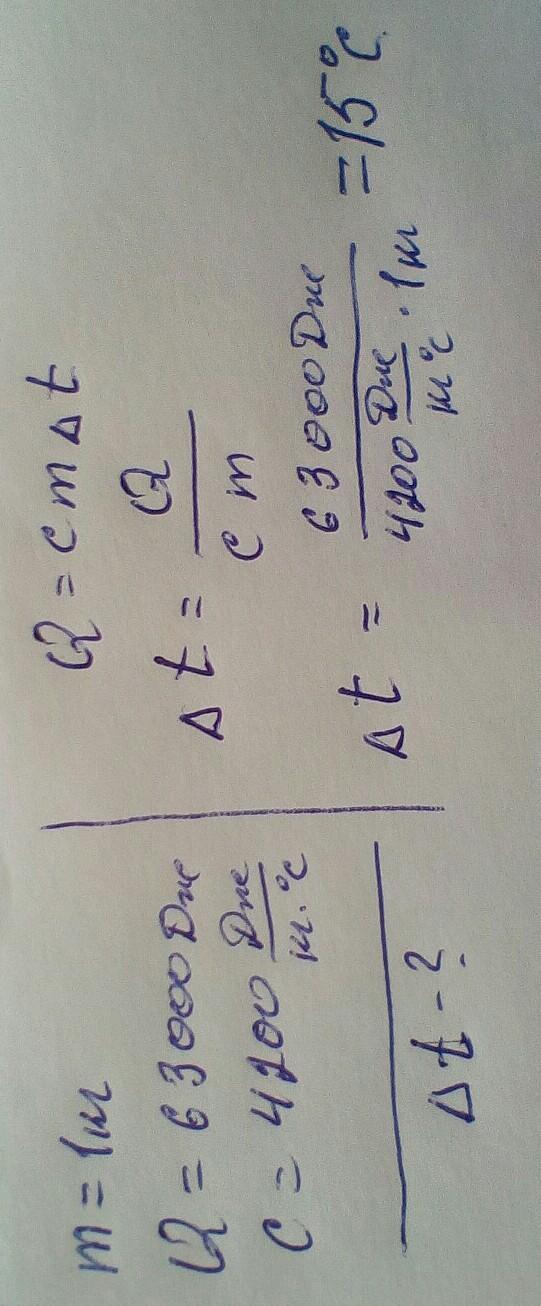 m = 1м
Q = 63000 Дж
c = 4200 Дж/м·°C
Δt - ?
Q = c m Δt
Δt = Q/c m
Δt = 63000 Дж/4200 Дж/м°C · 1м = 15°C